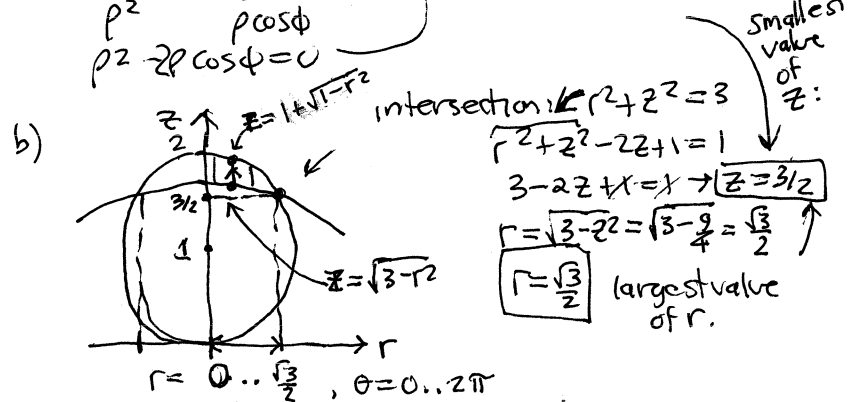 ρ² ρcosϕ
ρ² - 2ρ cosϕ = 0
smallest
value
of
z:
b)
z
2
z = 1+√1-r²
intersection: r² + z² = 3
r² + z² - 2z + 1 = 1
3 - 2z + 1 = 1 → z = 3/2
3/2
r = √3-z² = √3-9/4 = √3/2
1
z = √3-r²
r = √3/2
largest value
of r.
r
r = 0 .. √3/2 , θ = 0..2π